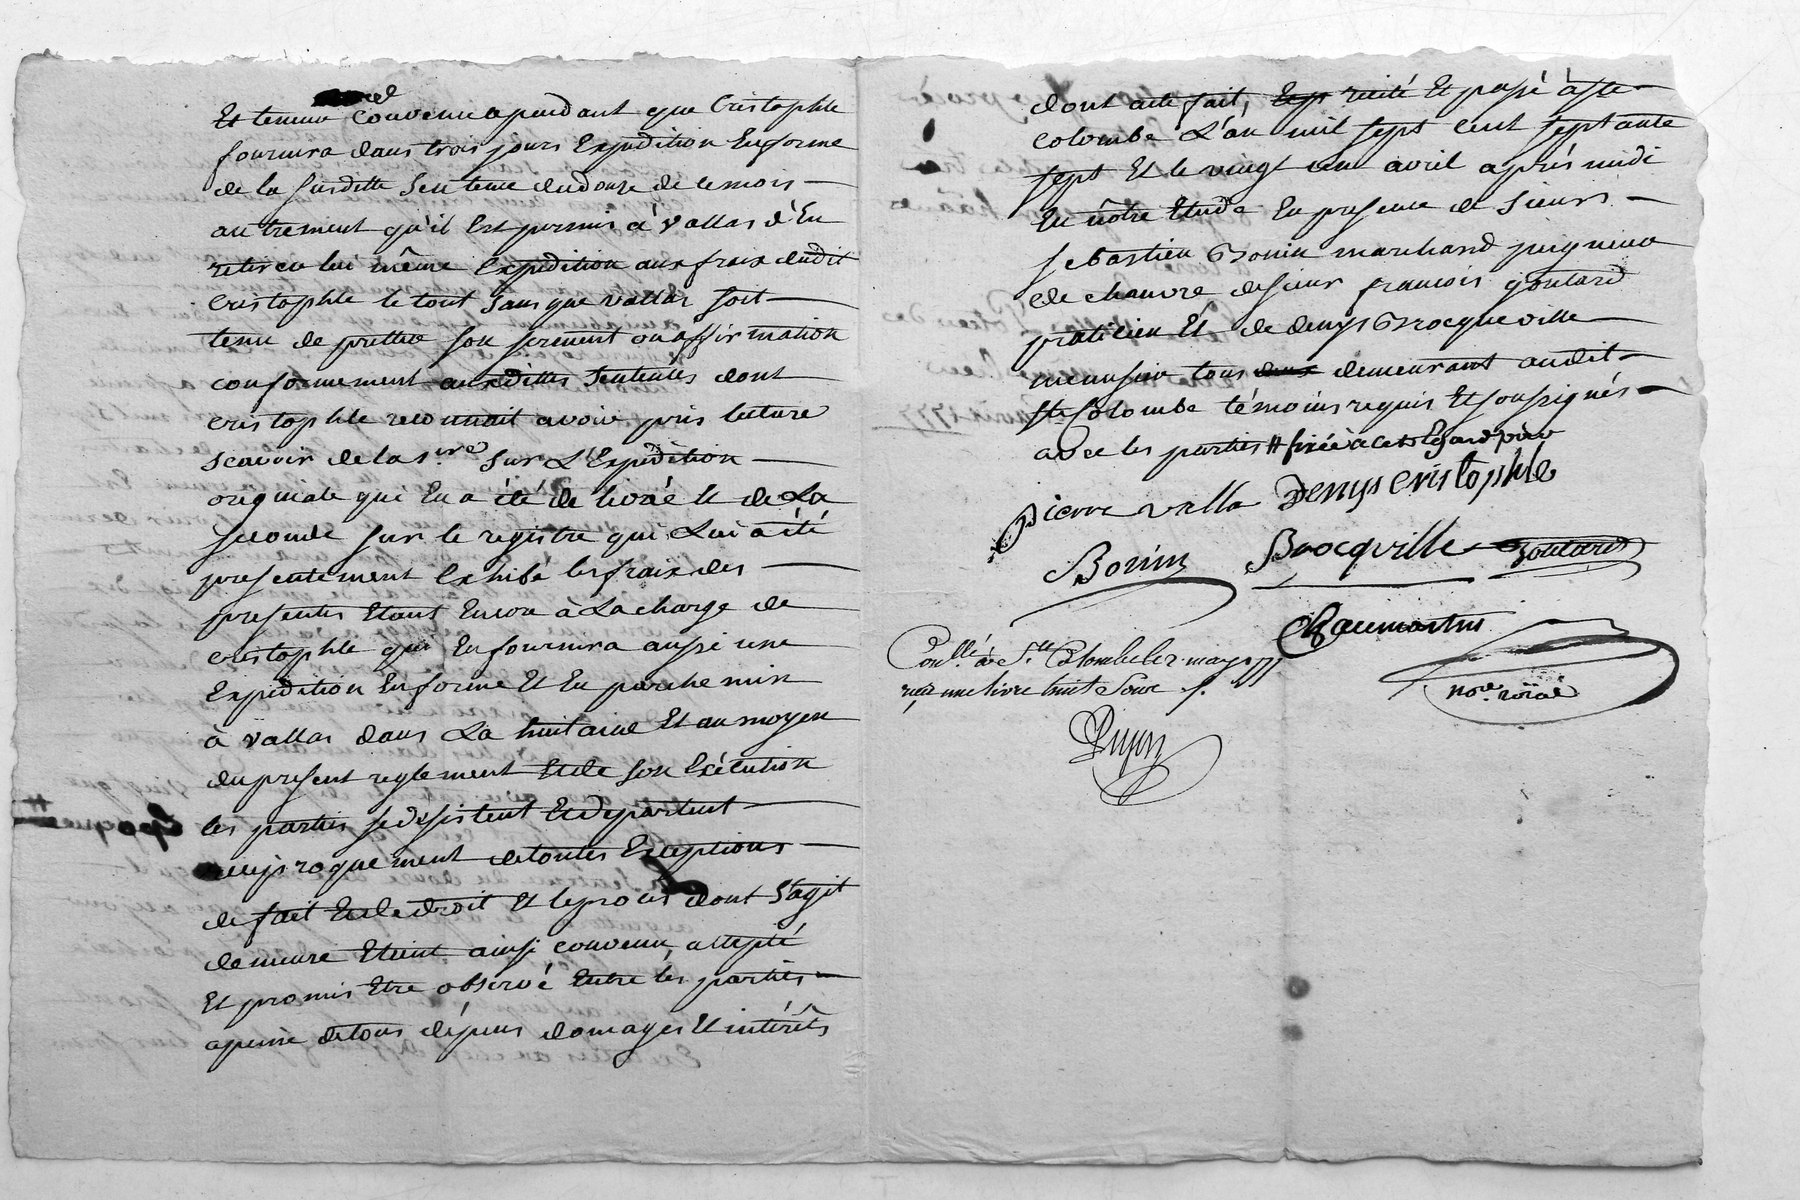 Et teneur convenu cependant que Cristophle
fournira dans trois jours Expedition Enforme
de la susditte Sentence du douze de ce mois
autrement qu'il Est permis à vallas d'En
retirer lui même Expedition aux fraix dudit
Cristophle le tout sans que vallas soit
tenu de pretter son serment ou affirmation
conformement auxdittes Sentences dont
cristophle reconnait avoir pris lecture
scavoir de la 1.ere sur L'Expedition
originale qui En a été délivré Et de La
seconde sur le registre qui Lui a été
presentement Exhibé les fraix des
presentes Etant Encor à La charge de
cristophle qui En fournira aussi une
Expedition Enforme Et En parchemin
à vallas dans La huitaine Et au moyen
du present reglement Et de son Exécution
les parties se desistent Et departent
reciproquement de toutes Exceptions
de fait Et de droit Et le procès dont S'agit
demeure Eteint ainsi convenu, accepté
Et promis Etre observé Entre les parties
a peine de tous dépens domages Et intérêts
dont acte fait, recité Et passé à Ste
colombe L'an mil sept cent septante
sept Et le vingt un avril après midi
En nôtre Etude En presence de sieurs
sebastien Bonin marchand peigneur
de chanvre de sieur francois goutard
praticien Et de denys Brocqueville
menusier tous demeurant audit
Ste Colombe témoins requis Et soussignés
avec les parties # fixée a cet Egard
pierre valla Denys cristophle
Bonin Brocqville Goutard
Chaumartin
Con.llé à S.te Colombe le 2 may 1777
reçu une livre huit Sous
nore. roïal